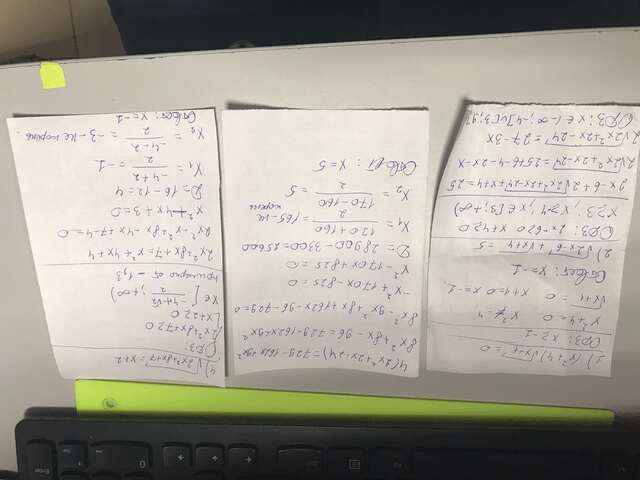 1) (x²+4)√x+1 = 0
ОДЗ: x ≥ -1
x²+4=0 x²≠-4
√x+1 = 0 x+1=0 x=-1
Ответ: x=-1
2) √2x-6 + √x+4 = 5
ОДЗ: 2x-6≥0 x+4≥0
x≥3; x≥4; x∈[3;+∞)
2x-6+2√2x²+2x-24+x+4=25
2√2x²+2x-24=25+6-4-2x-x
2√2x²+2x-24=27-3x
ОДЗ: x∈(-∞;-4]∪[3;9]
4(2x²+2x-24)=729-162x+9x²
8x²+8x-96=729-162x+9x²
8x²-9x²+8x+162x-96-729=0
-x²+170x-825=0
x²-170x+825=0
D=28900-3300=25600
x₁ = 170+160/2 = 165-не корень
x₂ = 170-160/2 = 5
Ответ: x=5
4) √2x²+8x+7 = x+2
ОДЗ:
{2x²+8x+7≥0
x+2≥0
x∈[-4+√2/2; +∞)
примерно от -1,3
2x²+8x+7=x²+4x+4
2x²-x²+8x-4x+7-4=0
x²+4x+3=0
D=16-12=4
x₁ = -4+2/2 = -1
x₂ = -4-2/2 = -3-не корень.
Ответ: x=-1